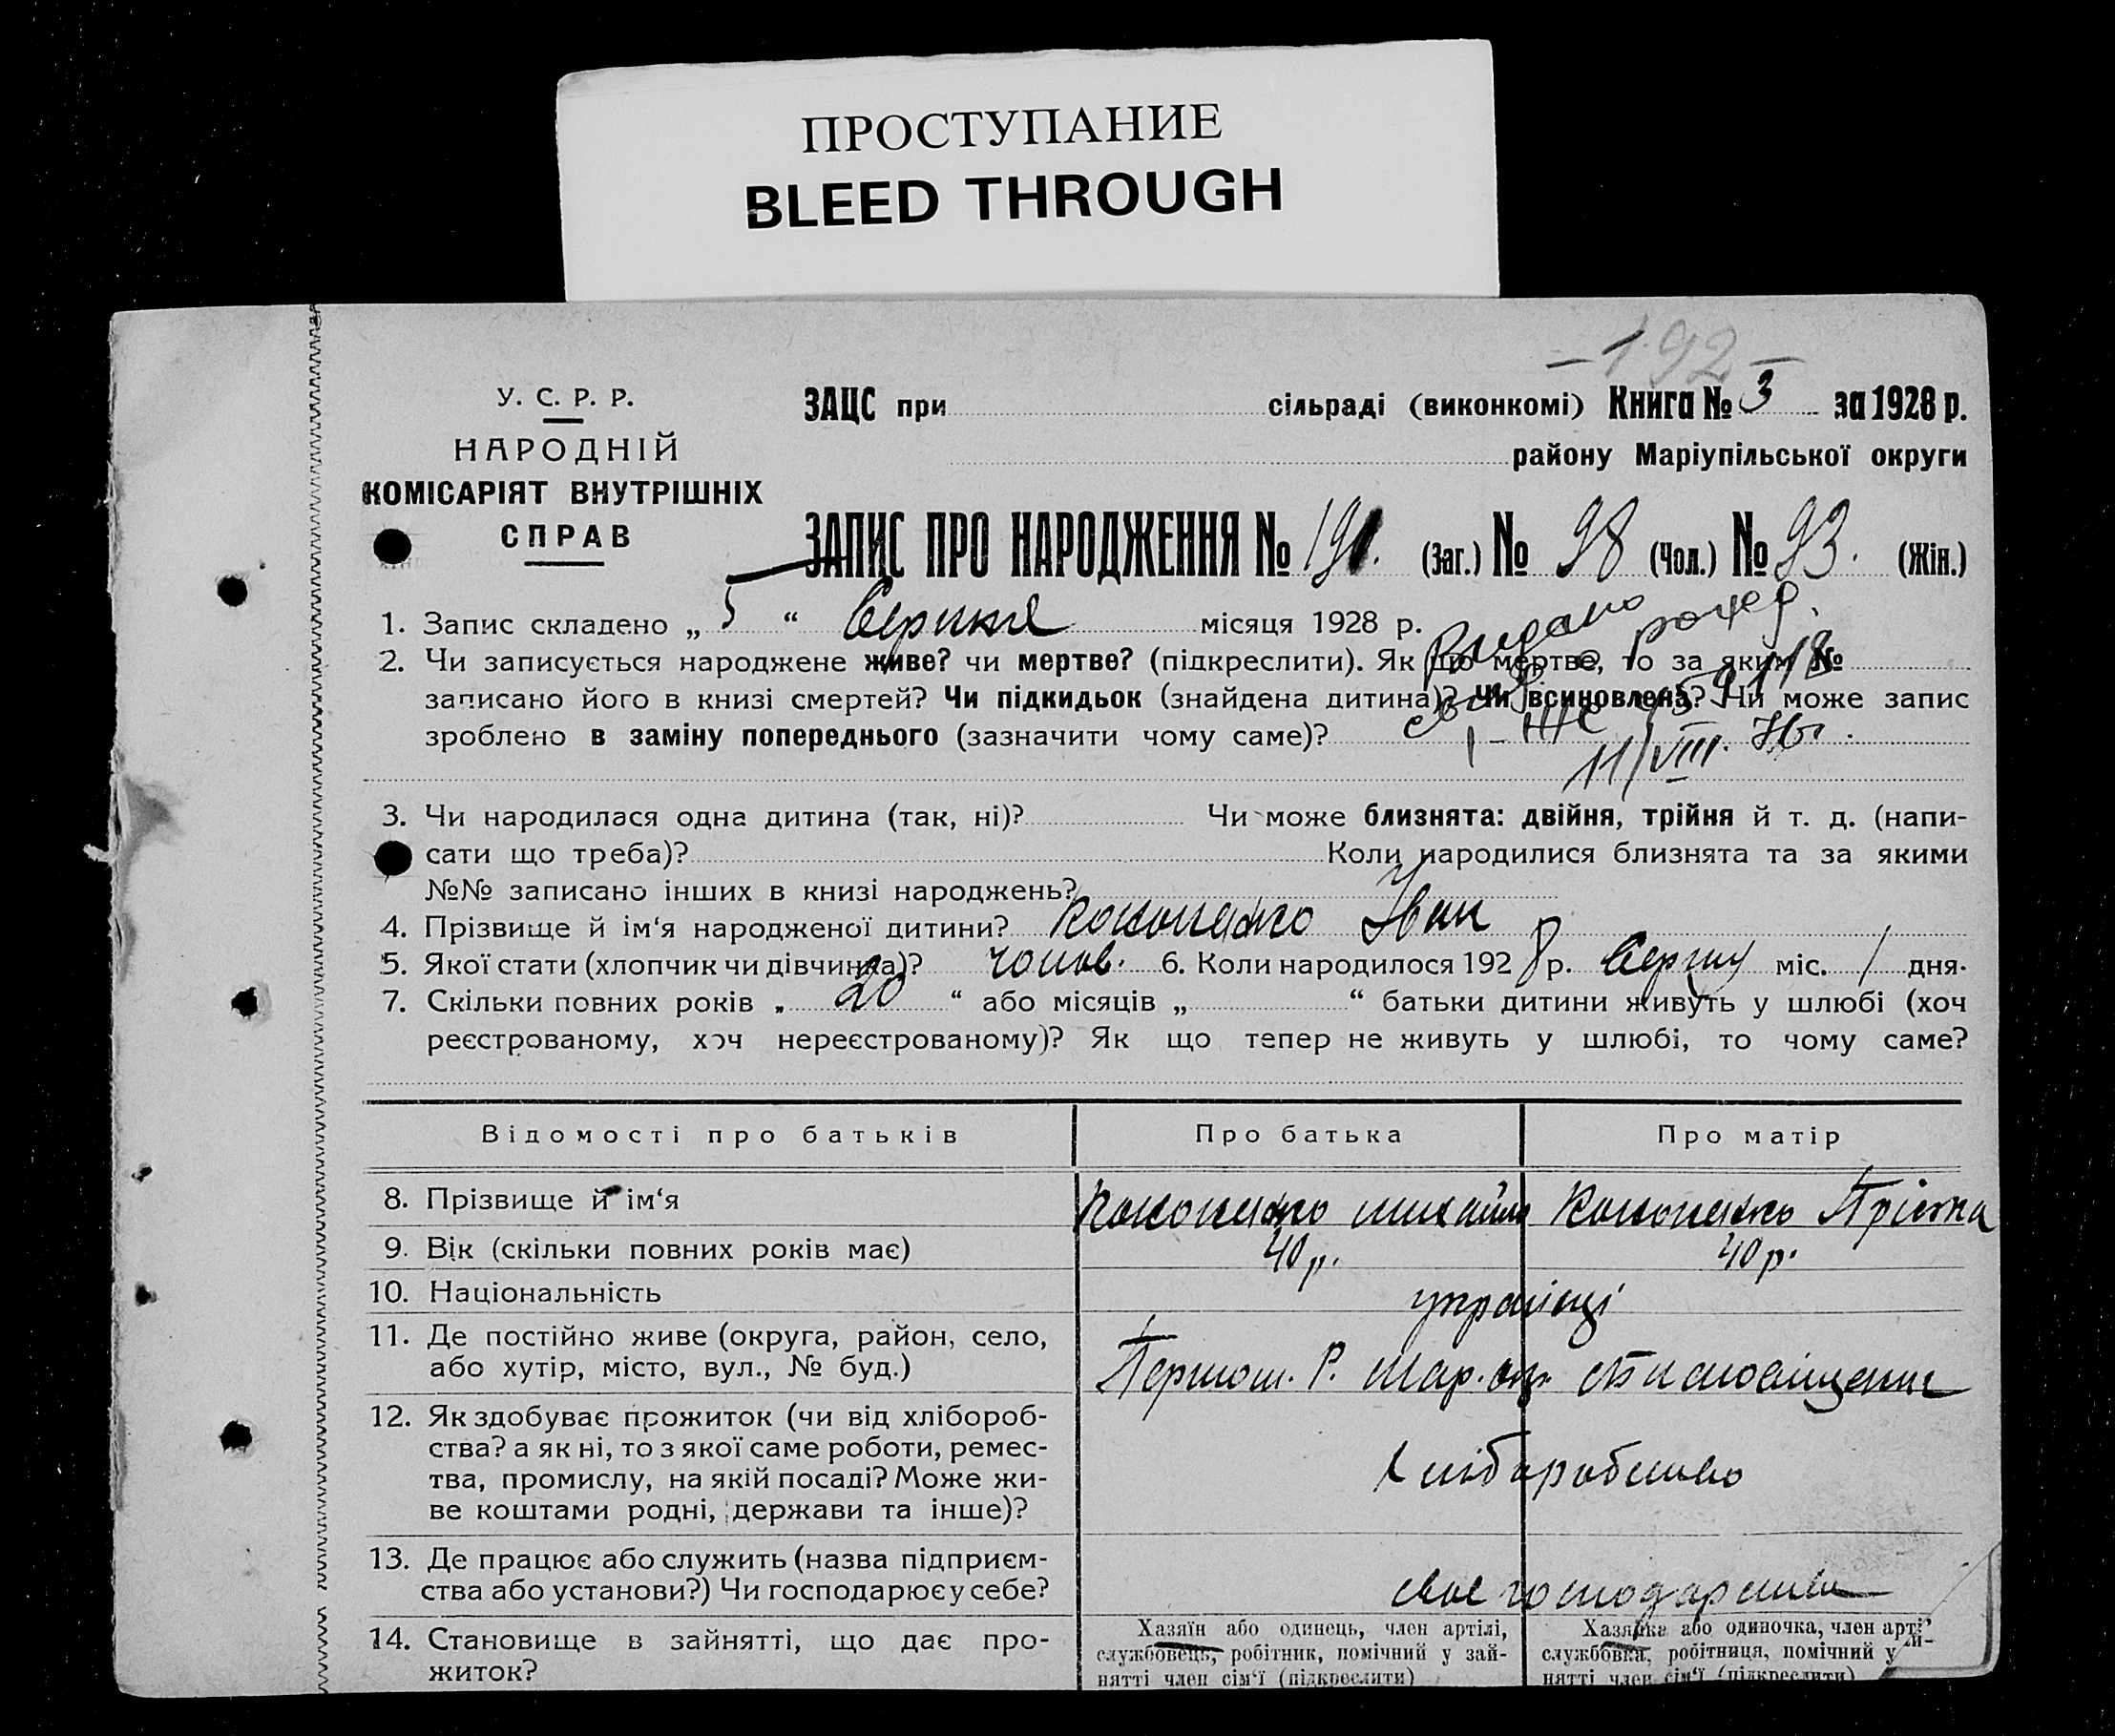 ПРОСТУПАНИЕ
BLEED THROUGH
– 192 –
У. С. Р. Р.
НАРОДНІЙ
КОМІСАРІЯТ ВНУТРІШНІХ
СПРАВ
ЗАЦС при сільраді (виконкомі) Книга № 3 за 1928 р.
району Маріупільської округи
ЗАПИС ПРО НАРОДЖЕННЯ № 191. (Заг.) № 98 (Чол.) № 93. (Жін.)
1. Запис складено „ 5 “ Серпня місяця 1928 р.
Видано
2. Чи записується народжене живе? чи мертве? (підкреслити). Як що мертве, то за яким №
записано його в книзі смертей? Чи підкидьок (знайдена дитина)? Чи всиновлена? Чи може запис
зроблено в заміну попереднього (зазначити чому саме)?
11/VIII.
3. Чи народилася одна дитина (так, ні)? Чи може близнята: двійня, трійня й т. д. (напи-
сати що треба)? Коли народилися близнята та за якими
№№ записано інших в книзі народжень?
4. Прізвище й ім‘я народженої дитини? Кононенко Іван
5. Якої стати (хлопчик чи дівчинка)? чолов. 6. Коли народилося 1928 р. Серпня міс. 1 дня.
7. Скільки повних років „ 20 “ або місяців „ “ батьки дитини живуть у шлюбі (хоч
реєстрованому, хоч нереєстрованому)? Як що тепер не живуть у шлюбі, то чому саме?
Відомості про батьків Про батька Про матір
8. Прізвище й ім‘я Кононенко Михайло Кононенко
9. Вік (скільки повних років має) 40 р. 40 р.
10. Національність українці
11. Де постійно живе (округа, район, село,
або хутір, місто, вул., № буд.) Р. Мар. окр.
12. Як здобуває прожиток (чи від хлібороб-
ства? а як ні, то з якої саме роботи, ремес-
тва, промислу, на якій посаді? Може жи-
ве коштами родні, держави та інше)? Хліборобство
13. Де працює або служить (назва підприєм-
ства або установи?) Чи господарює у себе? своє господарство
14. Становище в зайнятті, що дає про-
житок?
Хазяїн або одинець, член артілі,
службовець, робітник, помічний у зай-
нятті член сім‘ї (підкреслити)
Хазяйка або одиночка, член арті
службовка, робітниця, помічний у
нятті член сім‘ї (підкреслити)